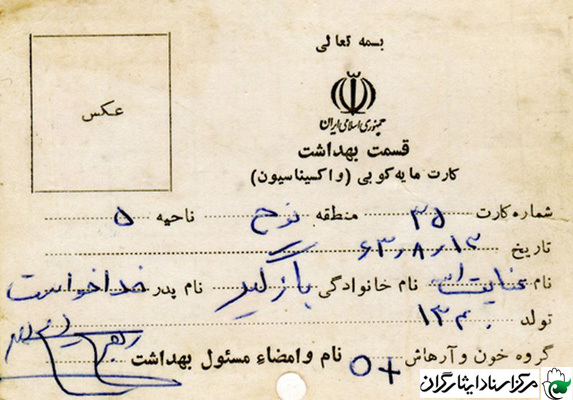 بسمه تعالی
عکس
جمهوری اسلامی ایران
قسمت بهداشت
کارت مایه کوبی (واکسیناسیون)
شماره کارت ۳۵ منطقه نوح ناحیه ۵
تاریخ ۶۳٫۸٫۱۳
نام عنایت اله نام خانوادگی بازگیر نام پدر خداخواست
تولد ۱۳۴۰
گروه خون و آرهاش O+ نام و امضاء مسئول بهداشت
مرکز اسناد ایثارگران